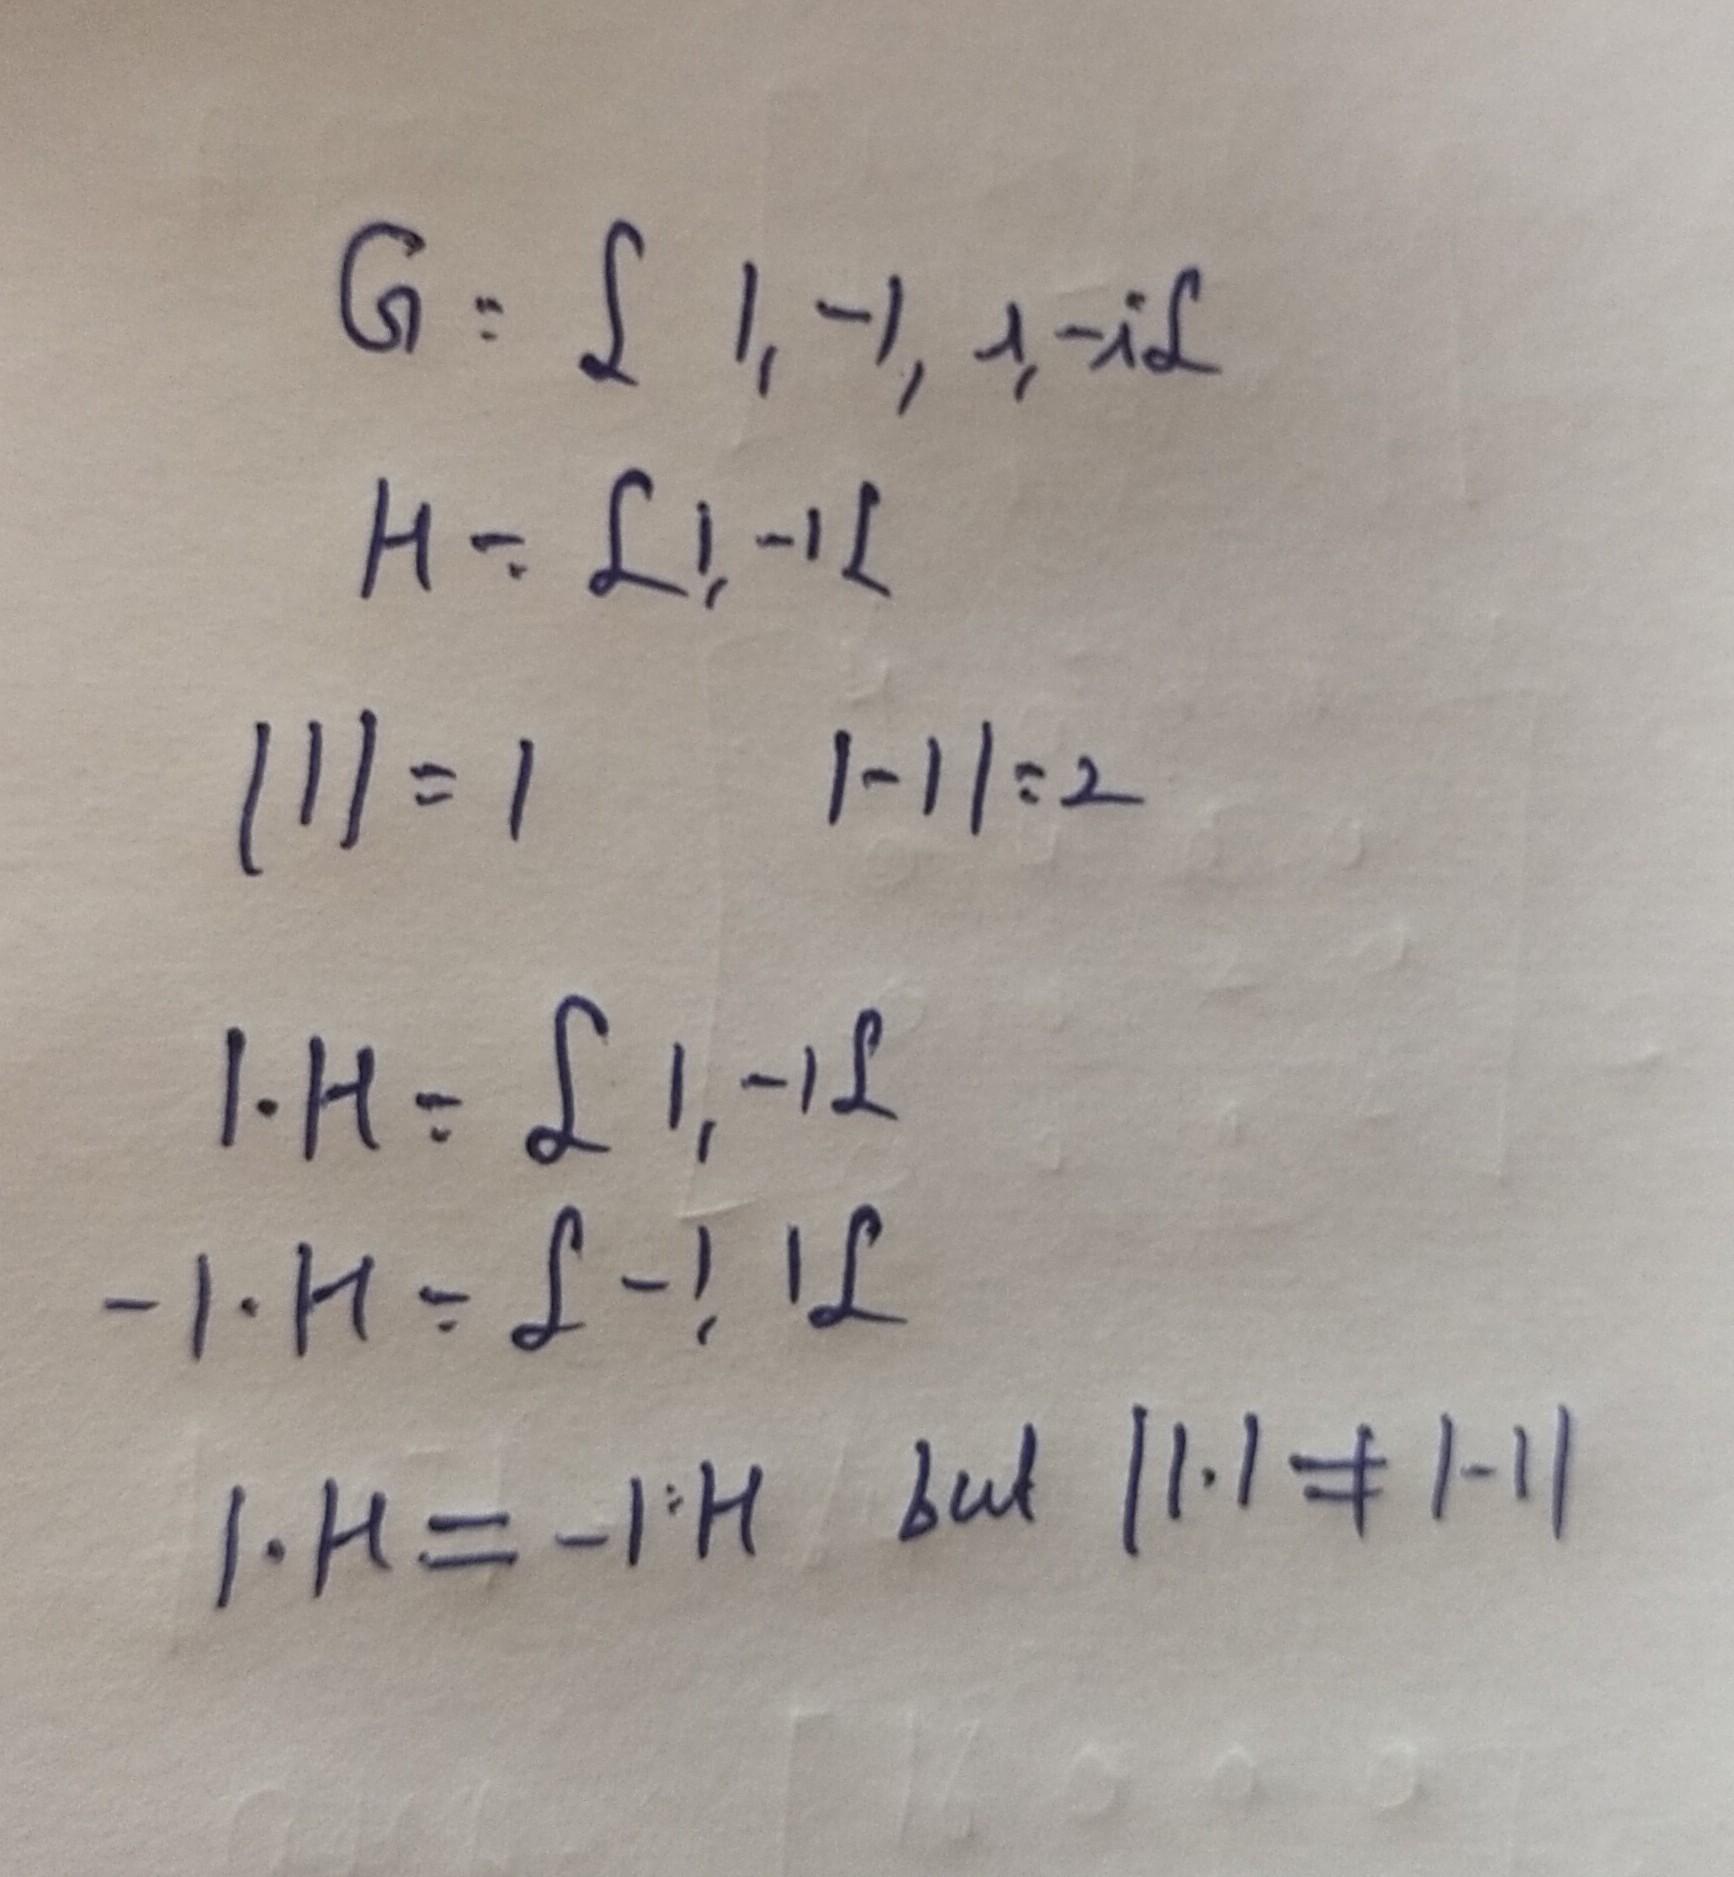 G = { 1, -1, i, -i}
H = {1, -1}
|1| = 1 |-1| = 2
1·H = { 1, -1}
-1·H = {-1, 1}
1·H = -1·H but |1·| ≠ |-1|